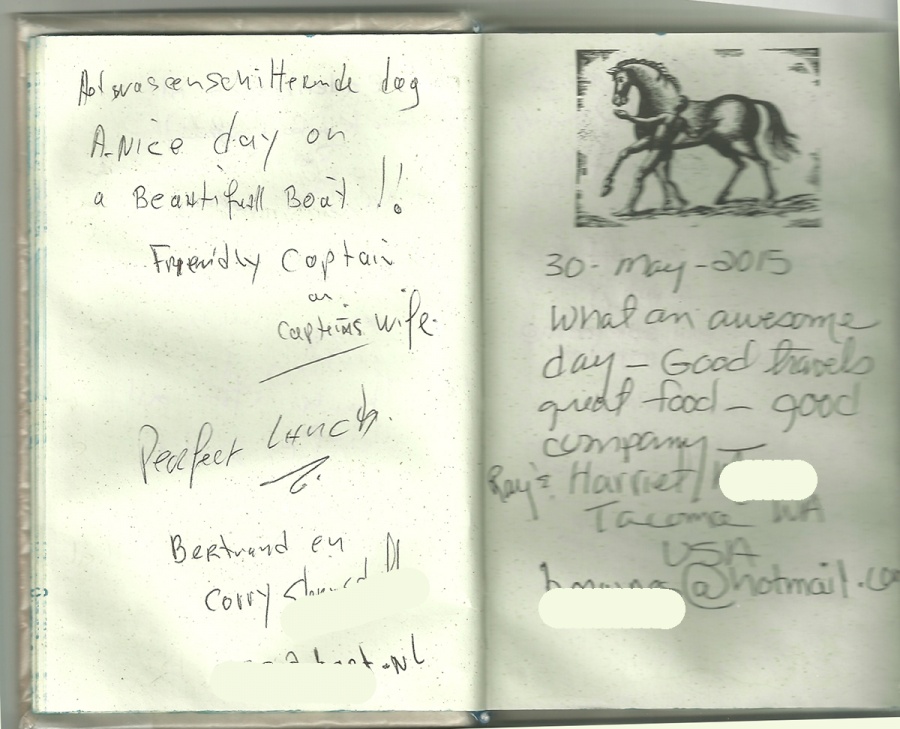 schitterende dag
A Nice day on
a Beautifull Boat !!
Friendly Captain
an
Captains wife.
Perfect Lunch.
Bertrand en
Corry
.NL
30 - May - 2015
What an awesome
day — Good travels
great food — good
company —
Ray & Harriet
Tacoma WA
USA
@hotmail.co